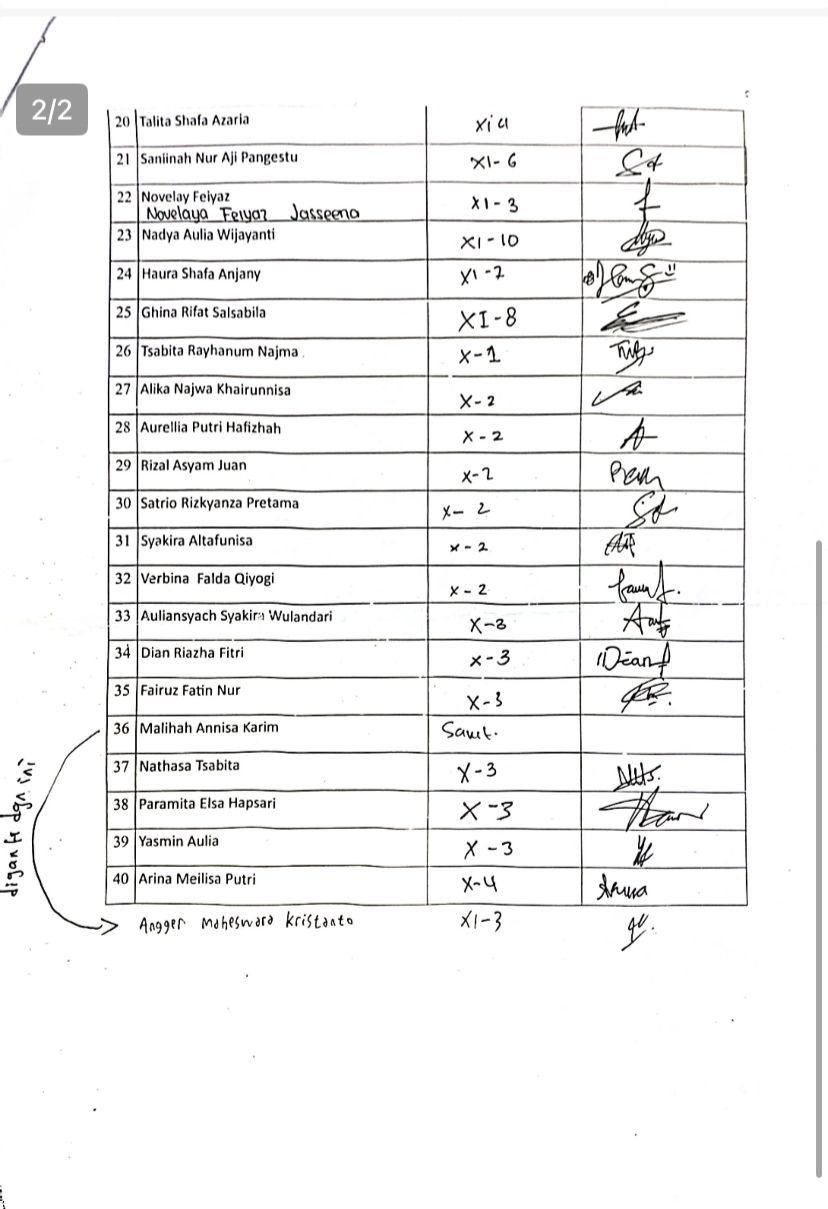 2/2
20 Talita Shafa Azaria XI 4
21 Saniinah Nur Aji Pangestu XI-6
22 Novelay Feiyaz XI-3
Novelaya Feiyaz Jasseena
23 Nadya Aulia Wijayanti XI-10
24 Haura Shafa Anjany XI-7
25 Ghina Rifat Salsabila XI-8
26 Tsabita Rayhanum Najma X-1
27 Alika Najwa Khairunnisa X-2
28 Aurellia Putri Hafizhah X-2
29 Rizal Asyam Juan X-2
30 Satrio Rizkyanza Pretama X-2
31 Syakira Altafunisa X-2
32 Verbina Falda Qiyogi X-2
33 Auliansyach Syakira Wulandari X-3
34 Dian Riazha Fitri X-3
35 Fairuz Fatin Nur X-3
36 Malihah Annisa Karim
37 Nathasa Tsabita X-3
38 Paramita Elsa Hapsari X-3
39 Yasmin Aulia X-3
40 Arina Meilisa Putri X-4
Angger Maheswara Kristanto XI-3
diganti dgn ini